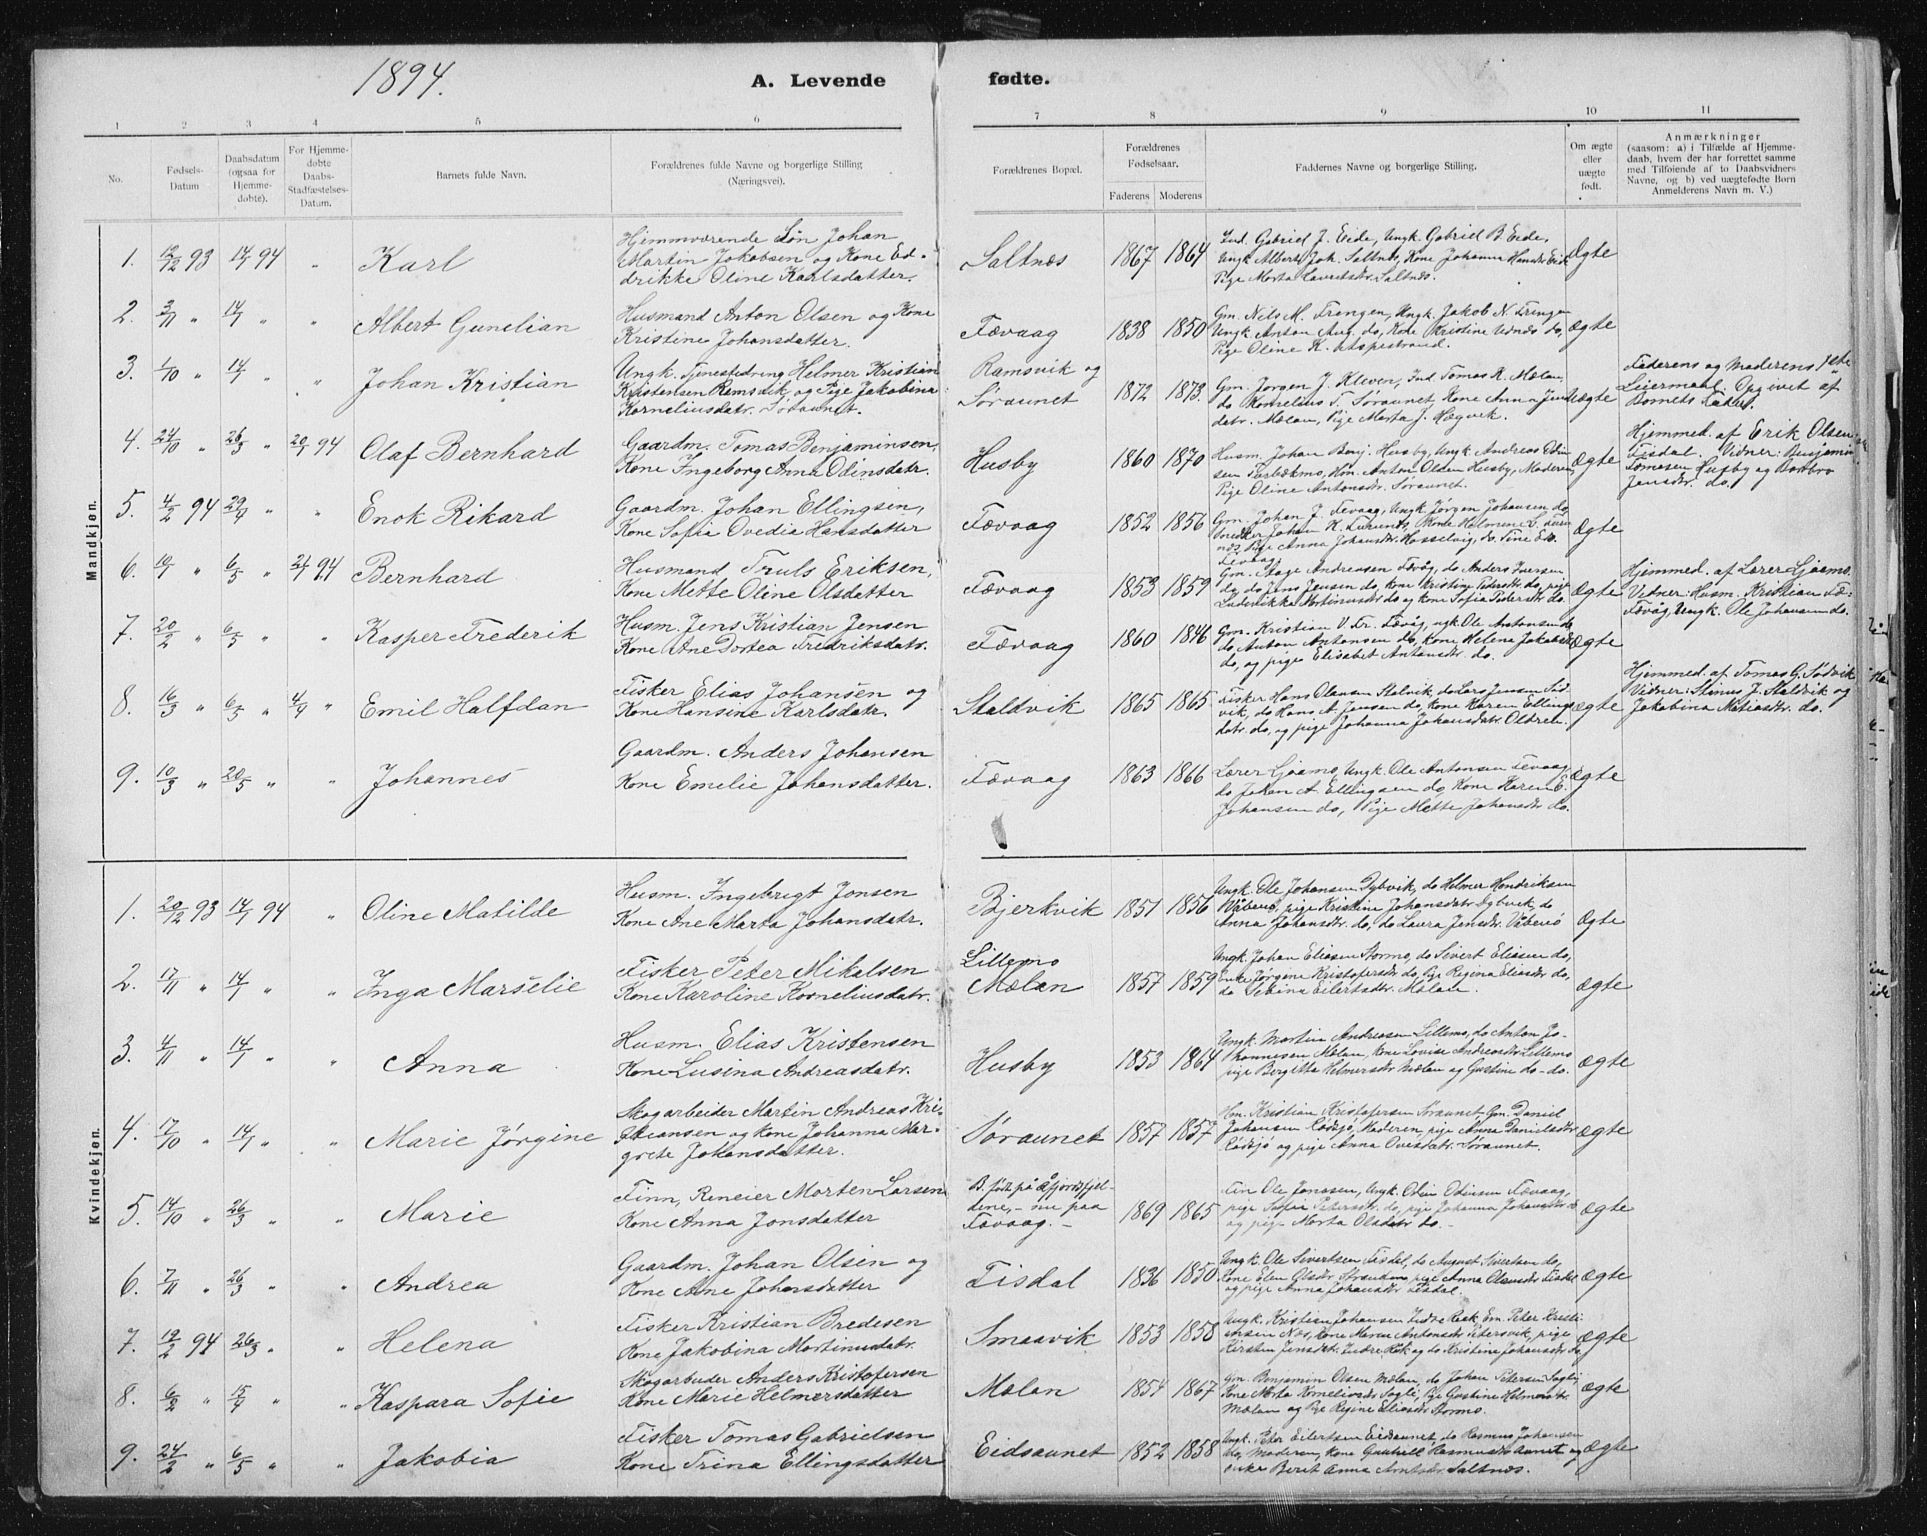 1894.
A. Levende fødte.
1 2 3 4 5 6 7 8 9 10 11
No.
Fødsels-
Datum
Daabsdatum
(ogsaa for
Hjemme-
døbte).
For Hjemme-
døbte
Daabs-
Stadfæstelses-
Datum.
Barnets fulde Navn.
Forældrenes fulde Navne og borgerlige Stilling
(Næringsvei).
Forældrenes Bopæl.
Forældrenes
Fødselsaar.
Faderens Moderens
Faddernes Navne og borgerlige Stilling.
Om ægte
eller
uægte
født.
Anmærkninger
(saasom: a) i Tilfælde af Hjemme-
daab, hvem der har forrettet samme
med Tilføiende af to Daabsvidners
Navne, og b) ved uægtefødte Børn
Anmelderens Navn m. V.)
Mandkjøn.
1. 12/12 93 14/1 94 " Karl
Hjemmværende Søn Johan
Martin Jakobsen og Kone Ed-
drikke Oline Karlsdatter.
Saltnæs 1867 1864
Ind. Gabriel J. Eide, Ungk. Gabriel B. Eide,
Ungk. Albert Joh. Saltnæs, Kone Johanna Hansdtr Eide
Pige Marta Lauritsdtr. Saltnæs.
Ægte
2. 3/11 " 14/1 " " Albert Gunelian
Husmand Anton Olsen og Kone
Kristine Johansdatter.
Fævaag 1838 1850
Gm. Nils M. Frengen, Ungk. Jakob N. Frengen
Ungk. Anton Aug. do, Kone Kristine Vednæs do,
Pige Oline K. Aspestrand.
Ægte
3. 1/10 " 14/1 " " Johan Kristian
Ungk. Tjenestedreng Helmer Kristian
Kristensen Ramsvik og Pige Jakobine
Korneliusdatr. Søraunet.
Ramsvik og
Søraunet 1872 1873
Gm. Jørgen J. Kleven, Ind. Tomas R. Mælan,
do Kornelius T. Søraunet, Kone Anna Jens-
datr. Mælan, Pige Marta J. Hægvik.
Uægte
Faderens og Moderens 1ste
Leiermaal. Opgivet af
Barnets Fader.
4. 24/10 " 26/3 " 20/1 94 Olaf Bernhard
Gaardm. Tomas Benjaminsen,
Kone Ingeborg Anna Odinsdatr.
Husby 1860 1870
Husm. Johan Benj. Husby, Ungk Andreas Odin
sen , Hm. Anton Olsen Husby, Moderen,
Pige Oline Antonsdtr. Søraunet.
Ægte
Hjemmed. af Erik Olsen
Fisdal. Vidner: Benjamin
Tomasen Husby og Barbro
Jensdtr. do.
5. 4/2 94 29/4 " " Enok Rikard
Gaardm. Johan Ellingsen,
Kone Sofia Ovedia Hansdatter
Fævaag 1852 1856
Gm. Johan J. Fævaag, Ungk Jørgen Johansen do,
Johan K. , Kone Helmine
Pige Anna Johansdtr. Hasselvig, do. Tine
Fævaag.
Ægte
6. 10/1 " 6/5 " 24/1 94 Bernhard
Husmand Truls Eriksen,
Kone Mette Oline Olsdatter
Fævaag 1853 1859
Gm. Aage Andreasen Fævåg, do Anders Iversen
do, do Jens Jensen do, kone Kristine Pedersdtr do, pige
Ludvikke Martinusdtr do og kone Sofia Pedersdtr do.
Ægte
Hjemmed. af Lærer Gjæmo.
Vidner: Husm. Kristian Fr.
Fævåg, Ungk. Ole Johansen do.
7. 20/2 " 6/5 " " Kasper Frederik
Husm. Jens Kristian Jensen
Kone Ane Dortea Fredriksdatr.
Fævaag 1860 1846
Gm. Kristian V. Fr. Fævåg, ugk Ole Antonsen do
do, Anton Antonsen do, kone Helena Jakobsdtr
do, og pige Elisabet Antonsdtr. do.
Ægte
8. 16/3 " 6/5 " 4/4 " Emil Halfdan
Fisker Elias Johansen og
Kone Hansine Karlsdatr.
Staldvik 1865 1865
Fisker Hans Olausen Stalvik, do Lars Jensen Sæd
vik, do Hans A. Jensen do, kone Karen Ellings
datr. do, og pige Johanna Johansdatr. Oldren.
Ægte
Hjemmed. af Tomas G. Sødvik
Vidner: Stinus J. Staldvik og
Jakobina Matiasdtr. do.
9. 10/3 " 20/5 " " Johannes
Gaardm. Anders Johansen
Kone Emelie Johansdatter.
Fævaag 1863 1866
Lærer Gjæmo, Ungk. Ole Antonsen Fævaag,
do Johan A. Ellingsen do, Kone Karen E.
Johansen do, Pige Mette Johansdtr do.
Ægte
Kvindekjøn.
1. 20/12 93 14/1 94 " Oline Matilde
Husm. Ingebrigt Jonsen
Kone Ane Marta Johansdatr.
Bjerkvik 1851 1856
Ungk. Ole Johansen Dybvik, do Helmer Hendriksen
Våberø, pige Kristine Johansdatr. Dybvik, do
Anna Johansdtr. do, do Laura Jensdtr. Våberø
Ægte
2. 17/11 " 14/1 " " Inga Marselie
Fisker Peter Mikalsen
Kone Karoline Korneliusdatr.
Lillemo
Mælan 1857 1859
Ungk. Johan Eliasen Stormo, do Sivert Eliasen do,
Enke Jørgine Kristofersdtr do, Pige Regina Eliasdtr do,
do Sebina Eilertsdtr. Mælan.
Ægte
3. 4/11 " 14/1 " " Anna
Husm. Elias Kristensen
Kone Lusina Andreasdatr.
Husby 1853 1864
Ungk. Martin Andreasen Lillemo, do Anton Jo-
hannesen Mælan, kone Lovise Andreasdtr Lillemo
pige Bergitta Helmersdtr Mælan og Gustine do - do.
Ægte
4. 17/10 " 14/1 " " Marie Jørgine
Skogarbeider Martin Andreas Kri-
stiansen og kone Johanna Mar-
grete Johansdatter.
Søraunet 1857 1857
Hm. Kristian Kristofersen Søraunet, Gm. Daniel
Johansen Rødsjø, Moderen, pige Anna Danielsdtr
Rødsjø og pige Anna Ovesdatr. Søraunet.
Ægte
5. 14/10 " 26/3 " " Marie
Finn, Reneier Morten Larsen
Kone Anna Jonsdatter
B. født på Åfjordsfjel-
dene, - nu paa
Fævaag. - 1869 1865
Fin Ole Jonasen, Ungk. Odin Odinsen Fævaag,
pige Sofia Petersdtr. do, pige Johanna Johansdtr do
og pige Marta Olsdatr do. -
Ægte
6. 7/11 " 26/3 " " Andrea
Gaardm. Johan Olsen og
Kone Ane Johansdatter
Fisdal 1836 1850
Ungk. Ole Sivertsen Fisdal, do August Sivertsen do,
Kone Elen Olsdtr Stranden, pige Anna Olausdtr Fisdal
og pige Anna Johansdtr. Fisdal.
Ægte
7. 12/2 94 26/3 " " Helena
Fisker Kristian Bredesen
Kone Jakobina Martinusdatr.
Smaavik 1853 1858
Ungk. Kristian Johansen Indre Ræk, Em. Peter Kristi-
ansen Næs, Kone Maren Antonsdtr Petersvik, pige
Kirsten Jensdtr. Indre Ræk og do Kristine Johansdtr do
Ægte
8. 6/2 " 15/4 " " Kaspara Sofie
Skogarbeider Anders Kristofersen
Kone Marie Helmersdatter
Mælan 1854 1867
Gm. Benjamin Olsen Mælan, do Johan Petersen Sagli,
Kone Marta Korneliusdtr Sagli, Pige Gustine Helmersdtr
Mælan og Pige Regine Eliasdtr Stormo.
Ægte
9. 24/2 " 6/5 " " Jakobia
Fisker Tomas Gabrielsen
Kone Trina Ellingsdatter
Eidsaunet 1852 1858
Ungk. Peter Eilertsen Eidsaunet, do Rasmus Johansen
do, Moderen, kone Rasmusdtr Aunet og
enke Berit Anna Arntsdtr. Saltnæs.
Ægte